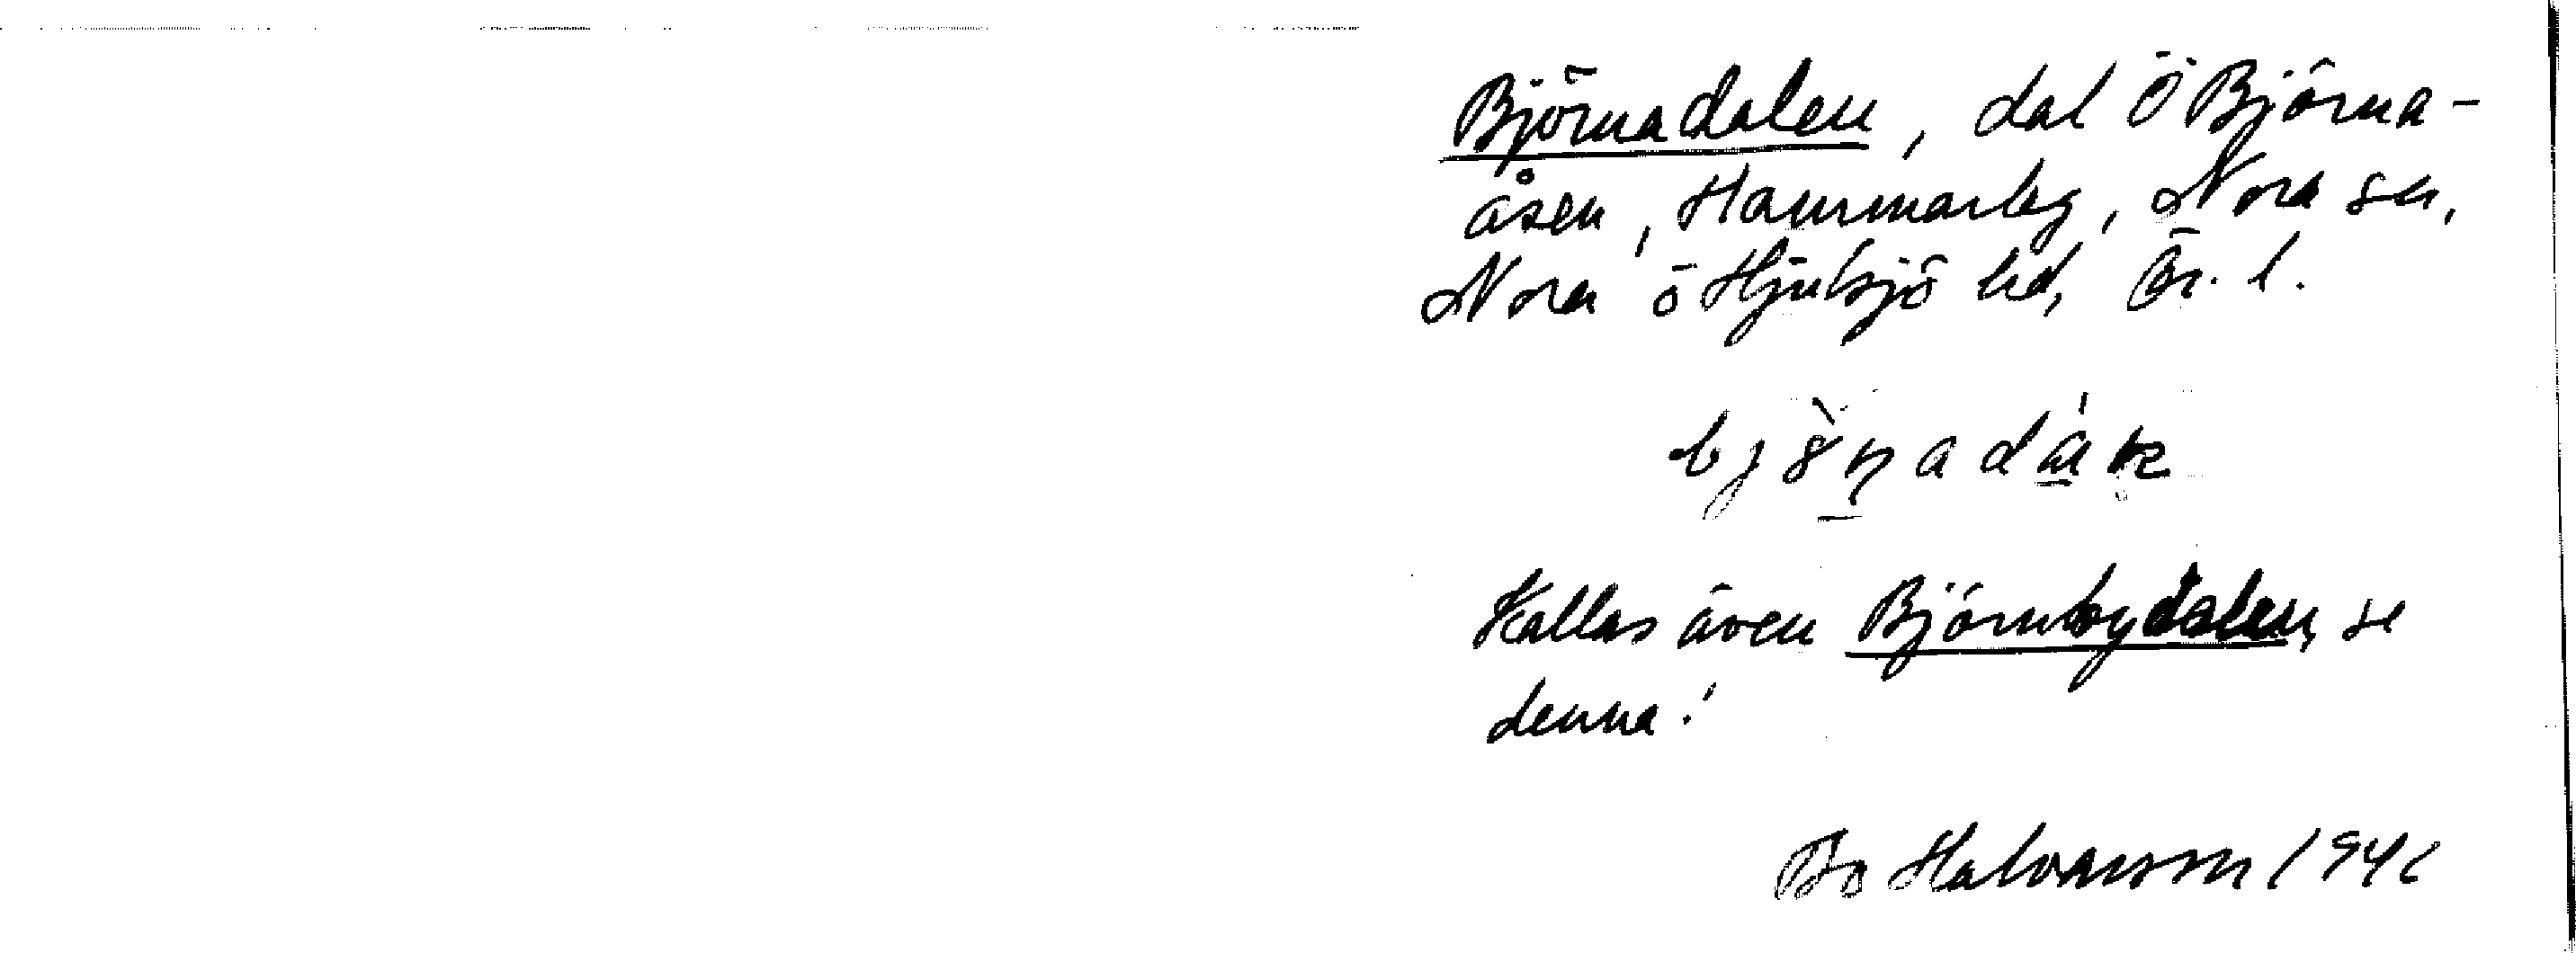 Björnadalen, dal Ö Björna-
åsen, Hammarby, Nora sn,
Nora o Hjulsjö hd, Ör. l.
Kallas även Björnbydalen, se
denna!
Bo Halvarsson 1941